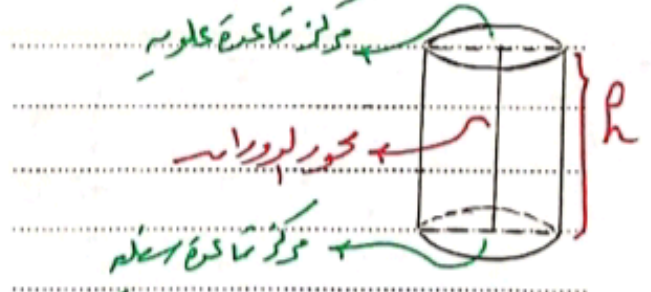 مركز قاعدة علوية
محور الدوران
h
مركز قاعدة سفلية